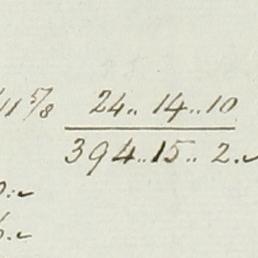 11 5/8 24.. 14..10
394..15.. 2.